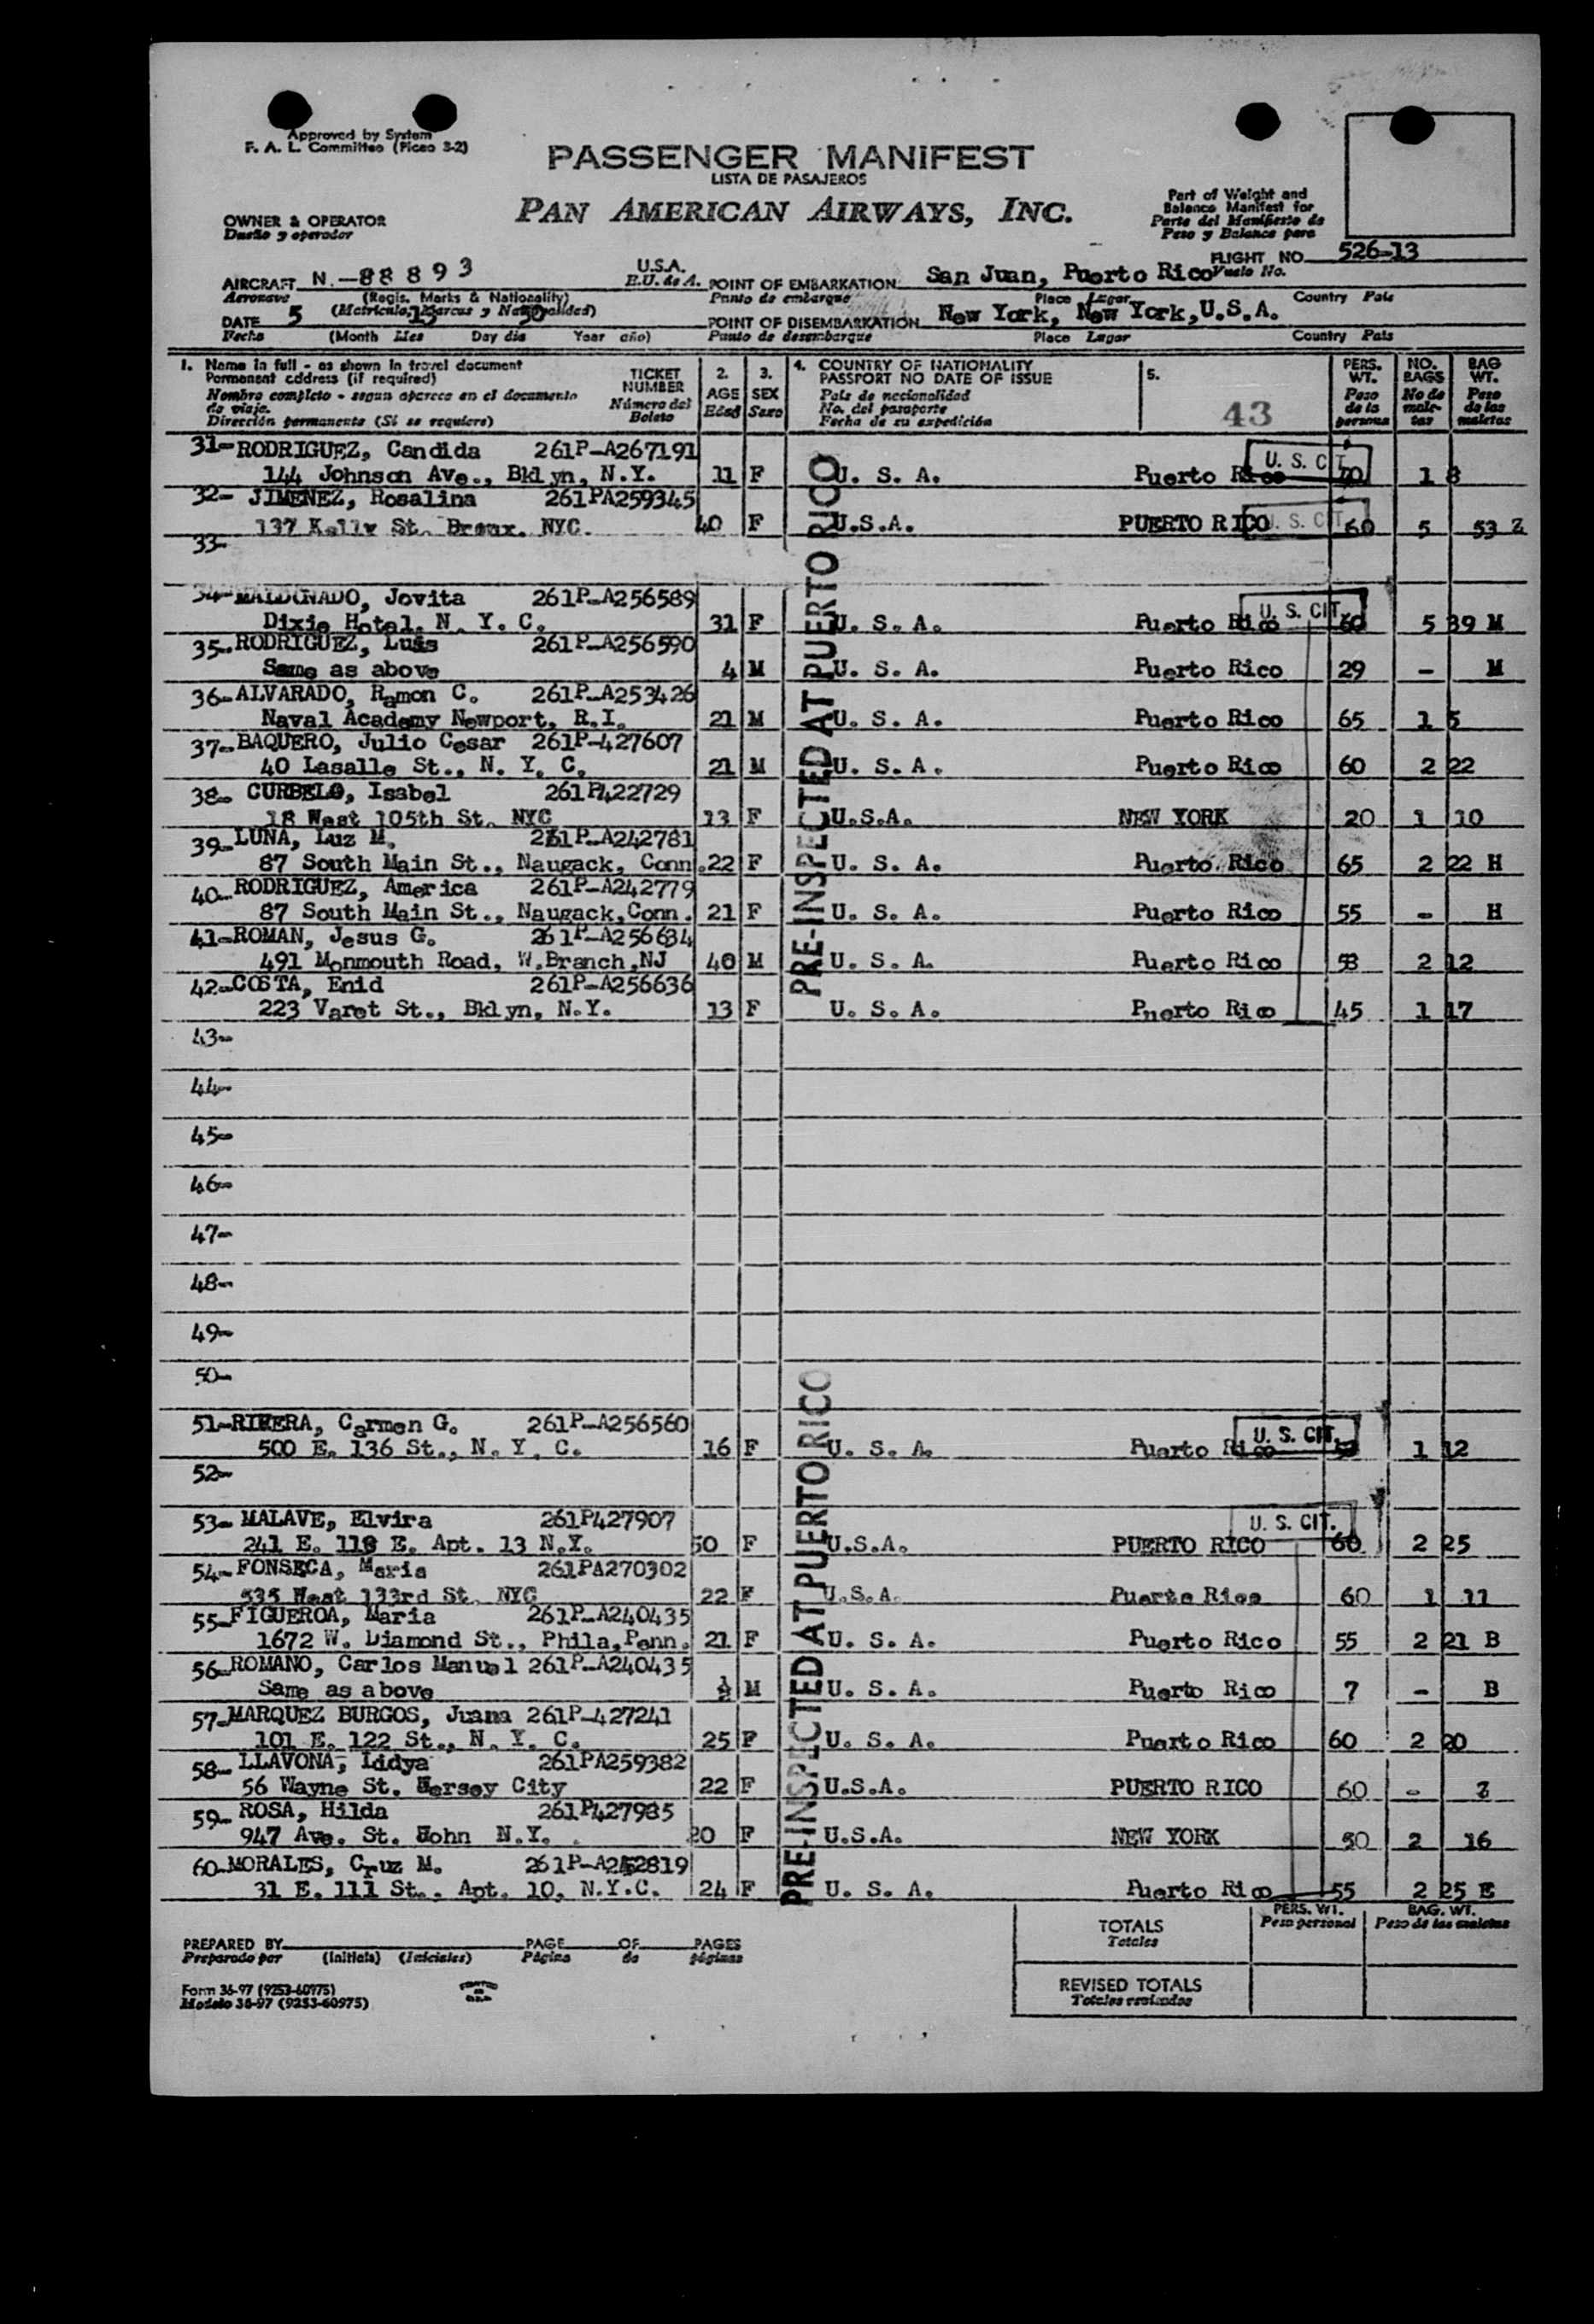 Approved by System
F. A. L. Committee (Picao 3-2)
PASSENGER MANIFEST
LISTA DE PASAJEROS
PAN AMERICAN AIRWAYS, INC.
Part of Weight and
Balance Manifest for
Parte del Manifiesto de
Peso y Balance para
OWNER & OPERATOR
Dueño y operador
FLIGHT NO. 526-13
Vuelo No.
AIRCRAFT N.-88893 U.S.A.
Aeronave (Regis. Marks & Nationality) E.U. de A.
(Matricula, Marcas y Nacionalidad)
POINT OF EMBARKATION San Juan, Puerto Rico
Punto de embarque Place Lugar Country Pais
DATE 5 13 50
Fecha (Month Mes Day dia Year año)
POINT OF DISEMBARKATION New York, New York, U.S.A.
Punto de desembarque Place Lugar Country Pais
1. Name in full - as shown in travel document
Permanent address (if required)
Nombre completo - segun aparece en el documento
de viaje.
Dirección permanente (Si se requiere)
TICKET
NUMBER
Número del
Boleto
2.
AGE
Edad
3.
SEX
Sexo
4. COUNTRY OF NATIONALITY
PASSPORT NO DATE OF ISSUE
Pais de nacionalidad
No. del pasaporte
Fecha de su expedición
5.
43
PERS.
WT.
Peso
de la
persona
NO.
BAGS
No de
male-
tas
BAG
WT.
Peso
de las
maletas
PRE-INSPECTED AT PUERTO RICO
31- RODRIGUEZ, Candida 261P-A267191
144 Johnson Ave., Bklyn, N.Y. 11 F U. S. A. Puerto Rico U. S. CIT. 70 1 8
32- JIMENEZ, Rosalina 261PA259345
137 Kelly St. Bronx. NYC. 40 F U.S.A. PUERTO RICO U. S. CIT. 60 5 53 Z
33-
34- MALDONADO, Jovita 261P-A256589
Dixie Hotel. N. Y. C. 31 F U. S. A. Puerto Rico U. S. CIT. 60 5 39 M
35- RODRIGUEZ, Luis 261P-A256590
Same as above 4 M U. S. A. Puerto Rico 29 - M
36- ALVARADO, Ramon C. 261P-A253426
Naval Academy Newport, R.I. 21 M U. S. A. Puerto Rico 65 1 5
37- BAQUERO, Julio Cesar 261P-427607
40 Lasalle St., N. Y. C. 21 M U. S. A. Puerto Rico 60 2 22
38- CURBELO, Isabel 261P422729
18 West 105th St. NYC 13 F U.S.A. NEW YORK 20 1 10
39- LUNA, Luz M. 261P-A242781
87 South Main St., Naugack, Conn. 22 F U. S. A. Puerto Rico 65 2 22 H
40- RODRIGUEZ, America 261P-A242779
87 South Main St., Naugack, Conn. 21 F U. S. A. Puerto Rico 55 - H
41- ROMAN, Jesus G. 261P-A256634
491 Monmouth Road, W.Branch, NJ 40 M U. S. A. Puerto Rico 53 2 12
42- COSTA, Enid 261P-A256636
223 Varet St., Bklyn, N.Y. 13 F U. S. A. Puerto Rico 45 1 17
43-
44-
45-
46-
47-
48-
49-
50-
PRE-INSPECTED AT PUERTO RICO
51- RIVERA, Carmen G. 261P-A256560
500 E. 136 St., N. Y. C. 16 F U. S. A. Puerto Rico U. S. CIT. 1 12
52-
53- MALAVE, Elvira 261P427907
241 E. 118 E. Apt. 13 N.Y. 50 F U.S.A. PUERTO RICO U. S. CIT. 60 2 25
54- FONSECA, Maria 261PA270302
535 West 133rd St. NYC 22 F U.S.A. Puerto Rico 60 1 11
55- FIGUEROA, Maria 261P-A240435
1672 W. Diamond St., Phila, Penn. 21 F U. S. A. Puerto Rico 55 2 21 B
56- ROMANO, Carlos Manuel 261P-A240435
Same as above ½ M U. S. A. Puerto Rico 7 - B
57- MARQUEZ BURGOS, Juana 261P-427241
101 E. 122 St., N. Y. C. 25 F U. S. A. Puerto Rico 60 2 20
58- LLAVONA, Lidya 261PA259382
56 Wayne St. Jersey City 22 F U.S.A. PUERTO RICO 60 - Z
59- ROSA, Hilda 261P427985
947 Ave. St. John N.Y. 20 F U.S.A. NEW YORK 50 2 16
60- MORALES, Cruz M. 261P-A252819
31 E. 111 St., Apt. 10, N.Y.C. 24 F U. S. A. Puerto Rico 55 2 25 E
PREPARED BY PAGE OF PAGES
Preparado por (Initials) (Iniciales) Página de páginas
TOTALS
Totales
PERS. WT.
Peso personal
BAG. WT.
Peso de las maletas
REVISED TOTALS
Totales revisados
Form 36-97 (9253-60975)
Modelo 36-97 (9253-60975)